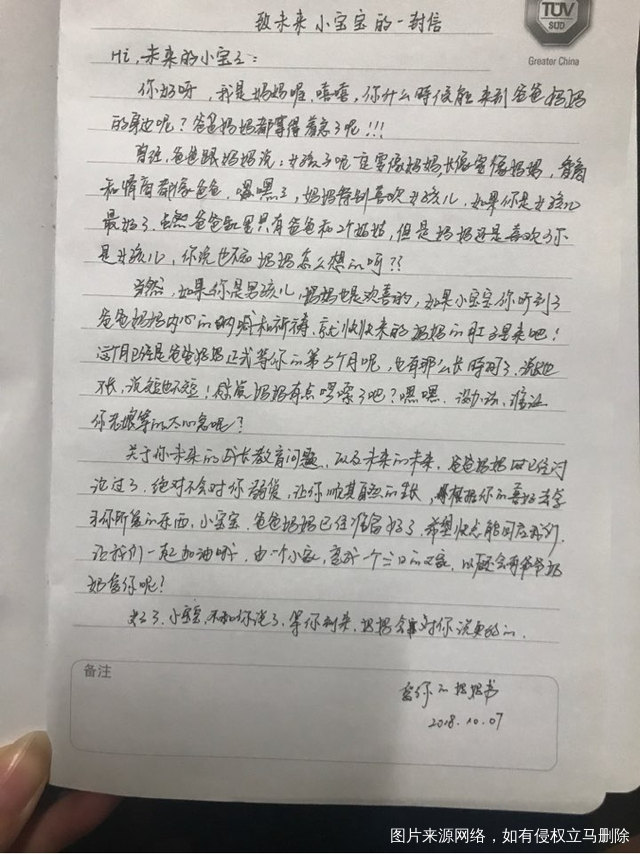 致未来小宝宝的一封信
TÜV
SÜD
Greater China
Hi, 未来的小宝宝:
你好呀,我是妈妈喔,嘻嘻,你什么时候能来到爸爸妈妈
的身边呢?爸爸妈妈都等得着急了呢!!!
曾经,爸爸跟妈妈说:女孩子呢一定要像妈妈长像要像妈妈,智商
和情商都像爸爸,嘿嘿了,妈妈特别喜欢女孩儿,如果你是女孩儿
最好了,虽然爸爸知里只有爸爸和2个姑姑,但是妈妈还是喜欢
是女孩儿,你说也不知妈妈怎么想的呀??
当然,如果你是男孩儿,妈妈也是欢喜的,如果小宝宝你听到了
爸爸妈妈内心的呐喊和祈祷,就快快来的妈妈的肚子里来吧!
这个月已经是爸爸妈妈正式等你的第5个月呢,也有那么长时间了,说长也
不长,说短也不短!你说妈妈有点啰嗦了吧?嘿嘿,没办法,谁让
你老娘等的太心急呢?
关于你未来的成长教育问题,以及未来的未来,爸爸妈妈都已经讨
论过了,绝对不会对你,让你顺其自然的生长,根据你的喜好去学
习你所爱的东西,小宝宝,爸爸妈妈已经准备好了,希望快点能回应我们,
让我们一起加油哦,由一个小家,变成一个三口的家,以后还会有爷爷奶
奶爱你呢?
好了,小宝宝,不和你说了,等你到来,妈妈会对你说更多的.
备注
爱你的妈妈书
2018.10.07
图片来源网络,如有侵权立马删除